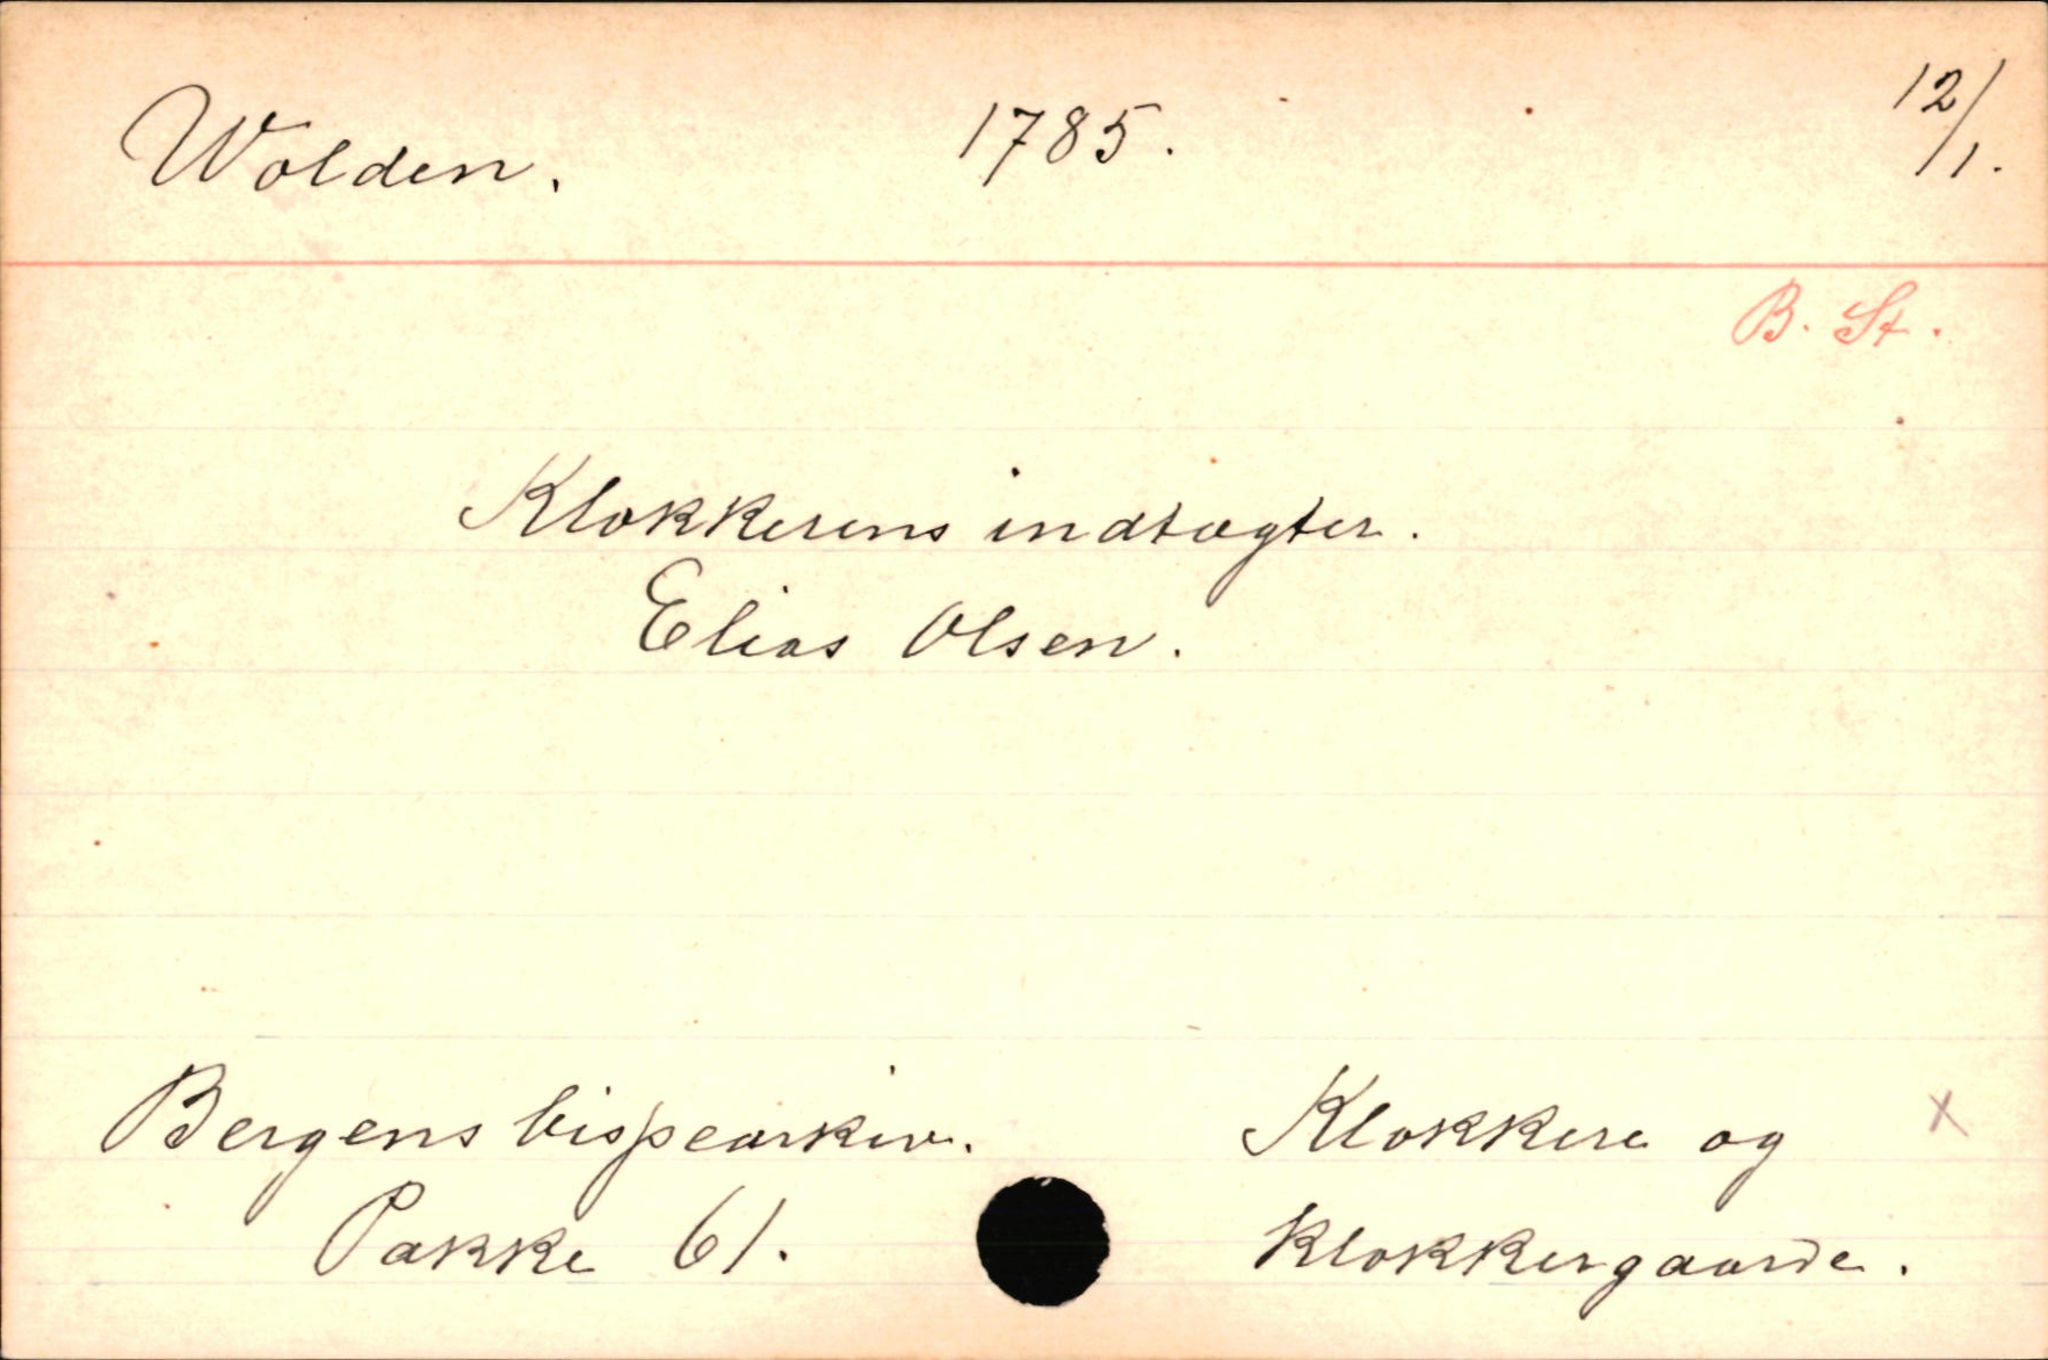 Wolden. 1785. 12/1.
B. St.
Klokkerens indtægter.
Elias Olsen.
Bergens bispearkiv. Klokkere og x
Pakke 61. Klokkergaarde.